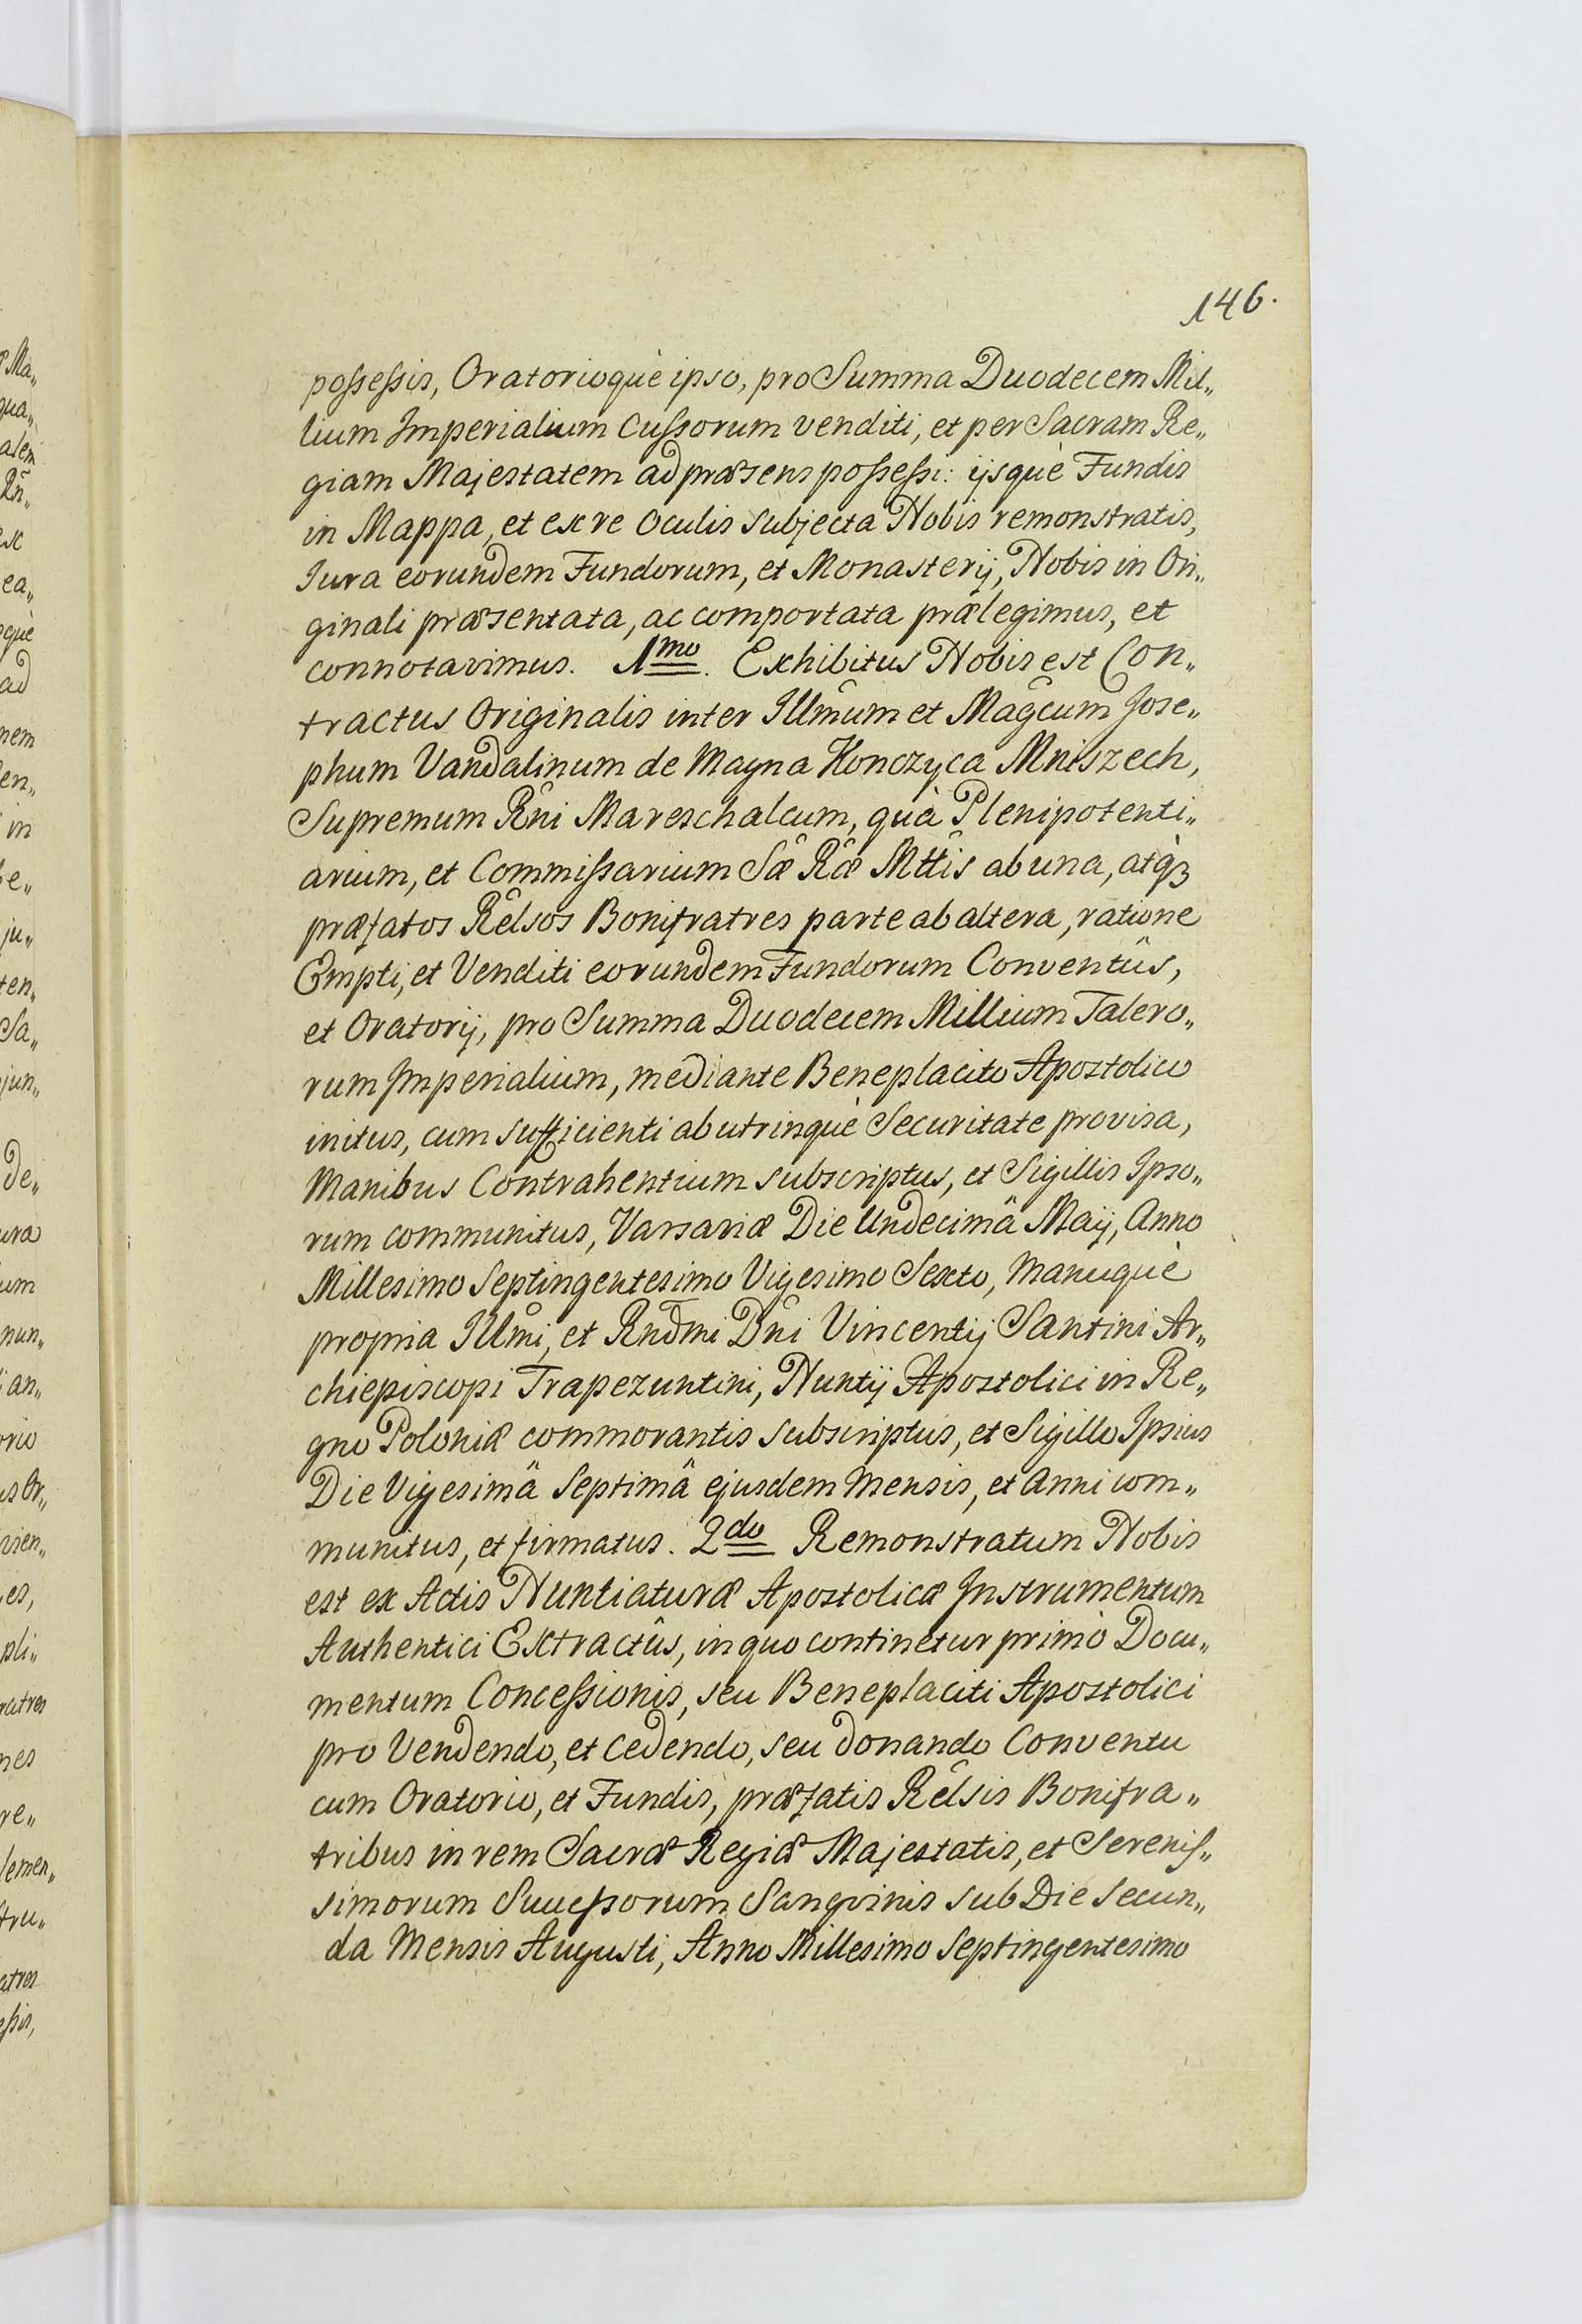 146.
possessis, Oratorioquè ipso, pro Summa Duodecem Mil„
lium Imperialium Cussorum venditi, et per Sacram Re„
giam Majestatem ad præsens possessi: ijsquè Fundis
in Mappa, et ex re Oculis subjecta Nobis remonstratis,
Jura eorundem Fundorum, et Monasterij, Nobis in Ori„
ginali præsentata, ac comportata prælegimus, et
connotavimus. 1mo. Exhibitus Nobis est Con„
tractus Originalis inter Illm̂um et Magĉum Jose„
phum Vandalinum de Magna Konczyca Mniszech,
Supremum Rn̂i Mareschalcum, quà Plenipotenti„
arium, et Commissarium Sæ̂ Ræ̂ Mtt̂is ab una, atq̀ꝫ
præfatos Rel̂sos Bonifratres parte ab altera, ratione
Empti, et Venditi eorundem Fundorum Conventûs,
et Oratorij, pro Summa Duodecem Millium Talero„
rum Imperialium, mediante Beneplacito Apostolico
initus, cum sufficienti ab utrinquè Securitate provisa,
Manibus Contrahentium subscriptus, et Sigillis Ipso„
rum communitus, Varsaviæ Die Undecimâ Maij, Anno
Millesimo Septingentesimo Vigesimo Sexto, Manuquè
propria Illm̂i, et Rnd̂mi Dn̂i Vincentij Santini Ar„
chiepiscopi Trapezuntini, Nuntij Apostolici in Re„
gno Poloniæ commorantis subscriptus, et Sigillo Ipsius
Die Vigesimâ Septimâ ejusdem Mensis, et Anni com„
munitus, et firmatus. 2do Remonstratum Nobis
est ex Actis Nuntiaturæ Apostolicæ Instrumentum
Authentici Extractûs, in quo continetur primò Docu„
mentum Concessionis, seu Beneplaciti Apostolici
pro Vendendo, et Cedendo, seu donando Conventu
cum Oratorio, et Fundis, præfatis Rel̂sis Bonifra„
tribus in rem Sacræ Regiæ Majestatis, et Serenis„
simorum Successorum Sangvinis sub Die Secun„
da Mensis Augusti, Anno Millesimo Septingentesimo